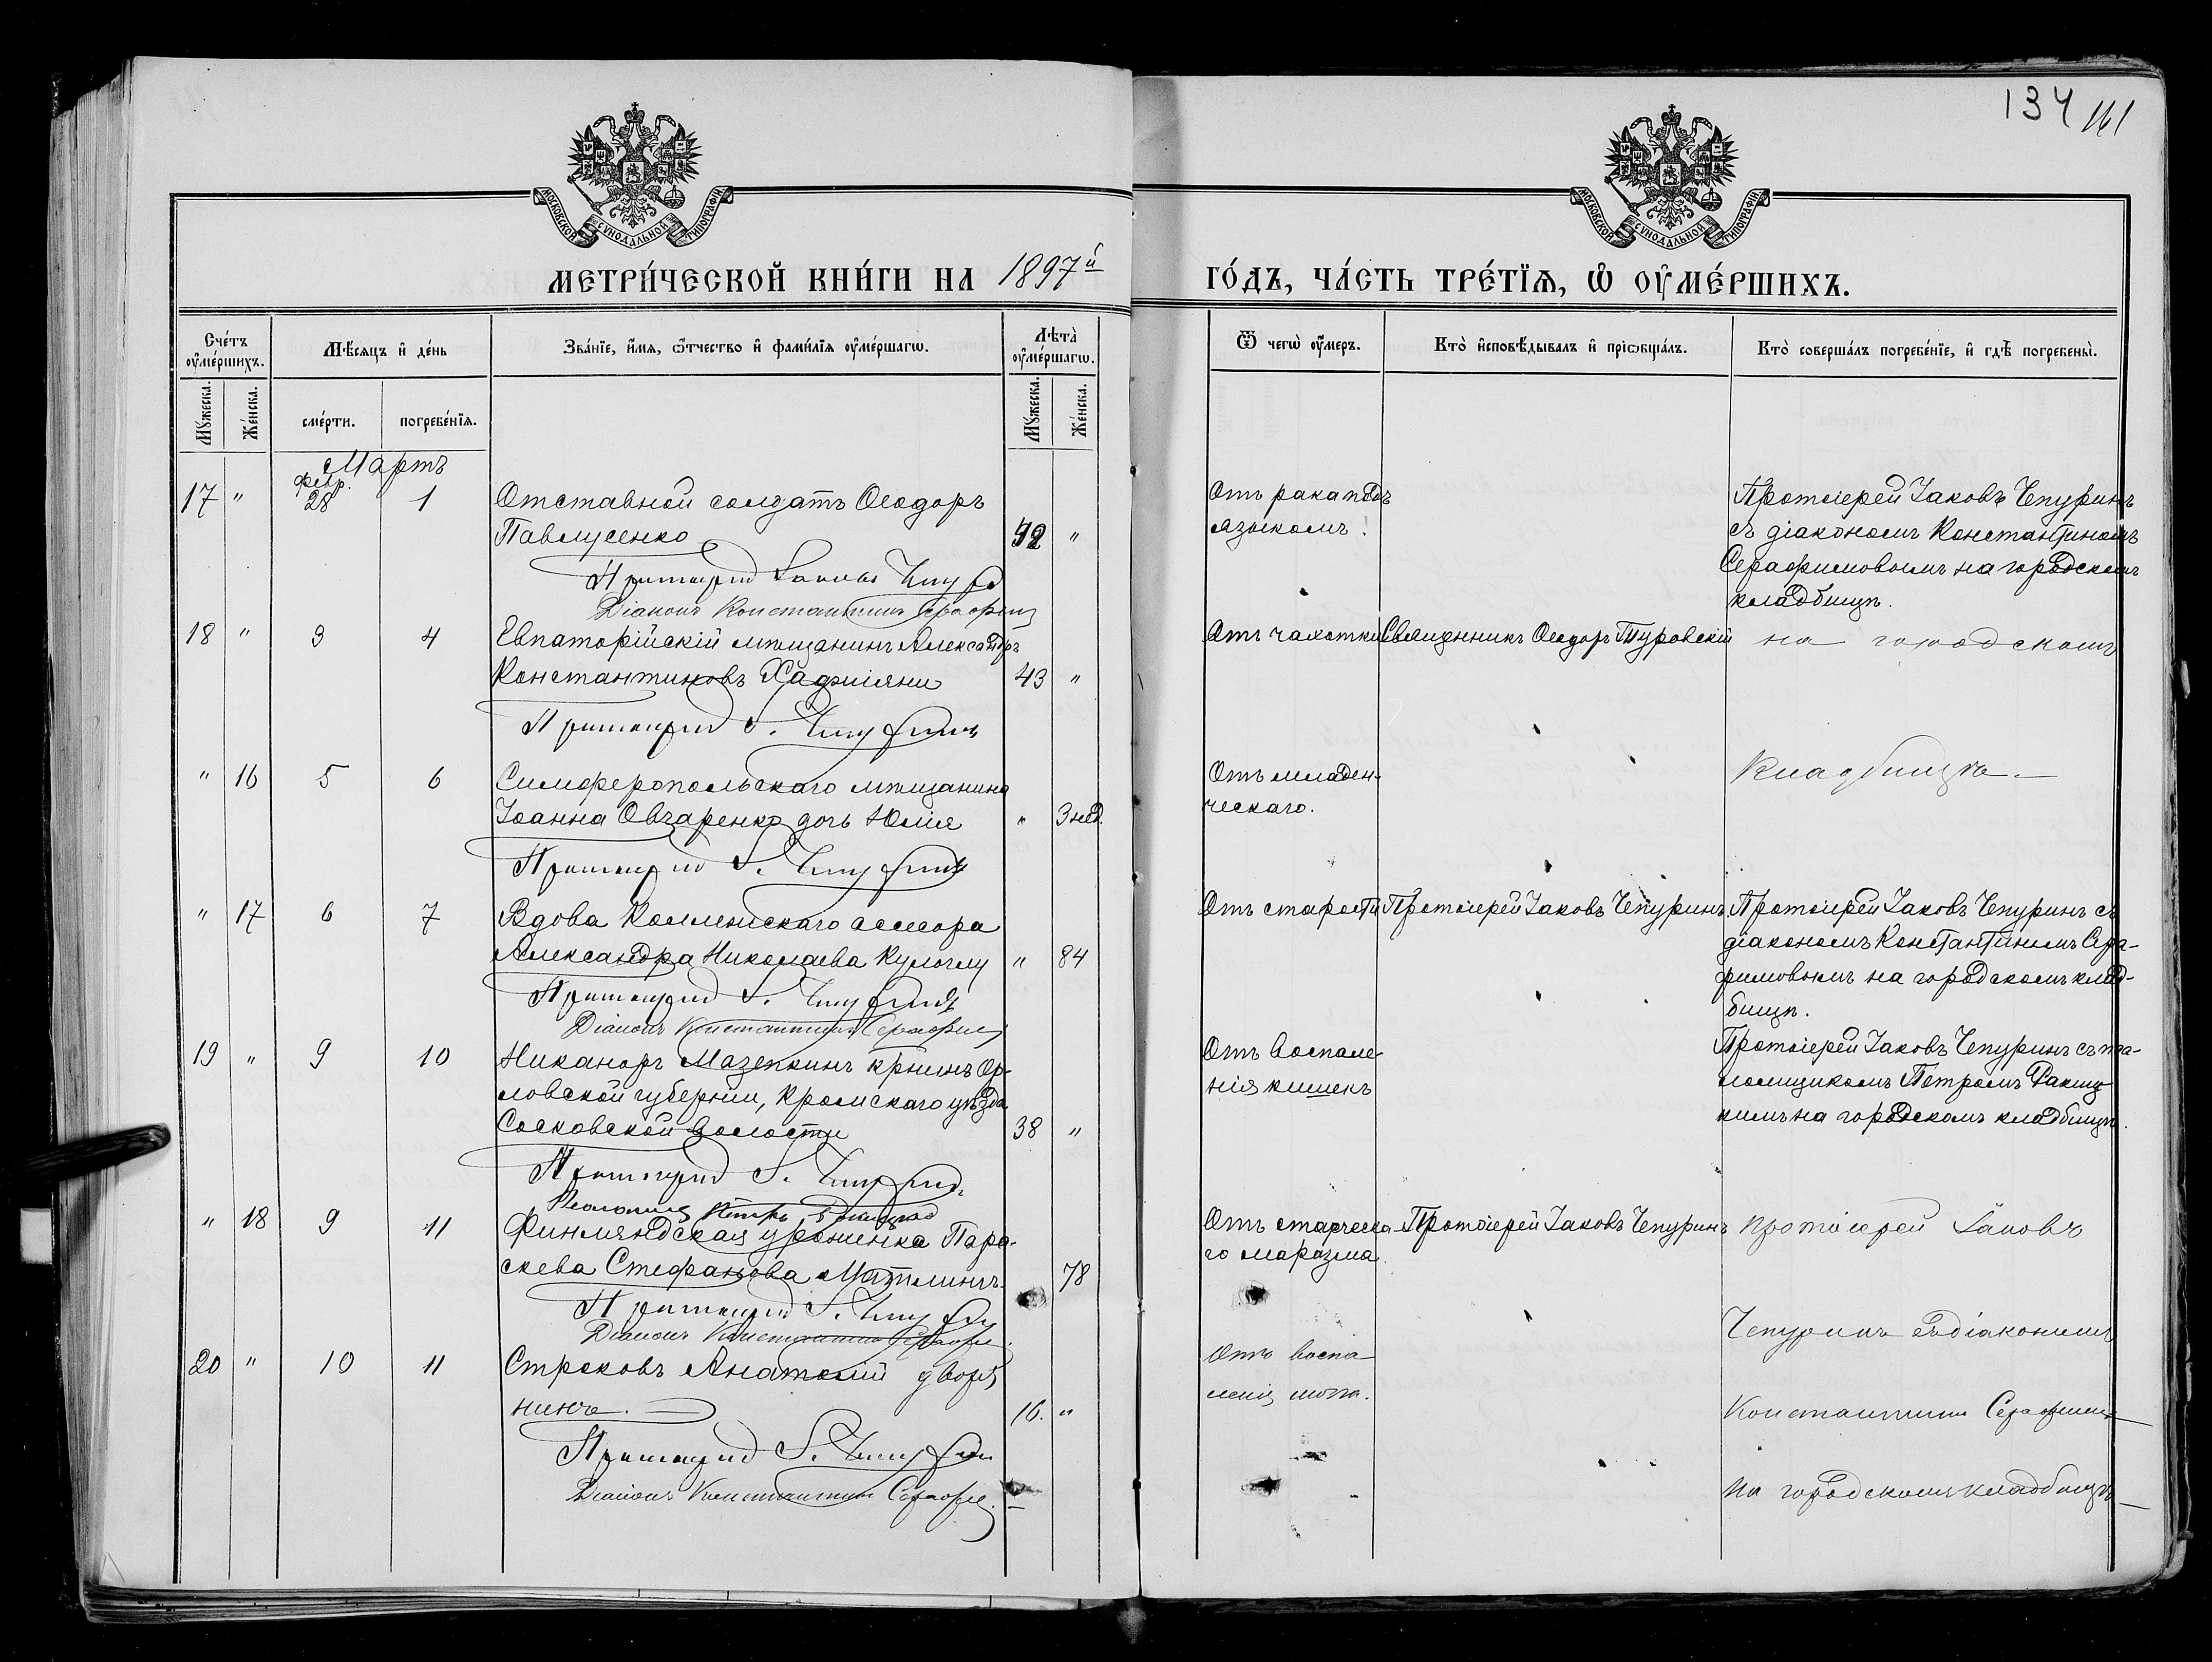 134 161
МОСКОВСКОЙ СѴНОДАЛЬНОЙ ТИПОГРАФІИ
МОСКОВСКОЙ СѴНОДАЛЬНОЙ ТИПОГРАФІИ
МЕТРИ́ЧЕСКОЙ КНИ́ГИ НА 1897й
ГО́ДЪ, ЧА́СТЬ ТРЕ́ТЇѦ, Ѡ҆ ОУ҆МЕ́РШИХЪ.
Сче́тъ оу҆ме́ршихъ.
Мꙋ́жеска.
Же́нска.
Мѣ́сяцъ и҆ де́нь
сме́рти.
погребе́нїѧ.
Зва́нїе, и҆́мѧ, ѻ҆́тчество и҆ фами́лїѧ оу҆ме́ршагѡ.
Лѣ́та̀ оу҆ме́ршагѡ.
Мꙋ́жеска.
Же́нска.
Ѿ чегѡ̀ оу҆́меръ.
Кто̀ и҆сповѣ́дывалъ и҆ прїѡбща́лъ.
Кто̀ соверша́лъ погребе́нїе, и҆ гдѣ̀ погребены̀.
Мартъ
17 " Февр. 28 1 Отставной солдатъ Ѳеодоръ
Павлусенко 42 "
Протоіерей Іаковъ Чепурин
Діаконъ Константинъ Серафим
Отъ рака подъ
языкомъ.
Протоіерей Іаковъ Чепуринъ
съ діакономъ Константиномъ
Серафимовымъ на городскомъ
кладбищѣ.
18 " 3 4 Евпаторійскій мѣщанинъ Александръ
Константиновъ Хаджіяни 43 "
Протоіерей І. Чепуринъ
Отъ чахотки Священникъ Ѳеодоръ Туровскій на городскомъ
" 16 5 6 Симферопольскаго мѣщанина
Іоанна Овчаренко дочь Юлія " 3 нед.
Протоіерей І. Чепуринъ
Отъ младен-
ческаго.
Кладбищѣ.
" 17 6 7 Вдова Коллежскаго ассесора
Александра Николаева Кулоглу " 84
Протоіерей І. Чепуринъ
Діаконъ Константинъ Серафим
Отъ старости Протоіерей Іаковъ Чепуринъ Протоіерей Іаковъ Чепуринъ съ
діакономъ Константиномъ Сера-
фимовымъ на городскомъ клад-
бищѣ.
19 " 9 10 Никаноръ Мазепкинъ кр-нинъ Ор-
ловской губерніи, Кромскаго уѣзда
Сосковской волости 38 "
Протоіерей І. Чепурин
Псаломщ Петръ
Отъ воспале-
нія кишекъ
Протоіерей Іаковъ Чепуринъ съ пса-
ломщикомъ Петромъ
на городскомъ кладбищѣ.
" 18 9 11 Финляндская уроженка Пара-
скева Стефанова 78
Протоіерей І. Чепурин
Діаконъ Константинъ Серафим
Отъ старческа-
го маразма.
Протоіерей Іаковъ Чепуринъ Протоіерей Іаковъ
Чепуринъ съ діакономъ
20 " 10 11 Строковъ Анатолій дворя
нинъ. 16. "
Протоіерей І. Чепурин
Діаконъ Константинъ Серафим.
Отъ воспа
ленія мозга.
Константин Серафим
на городскомъ кладбищѣ